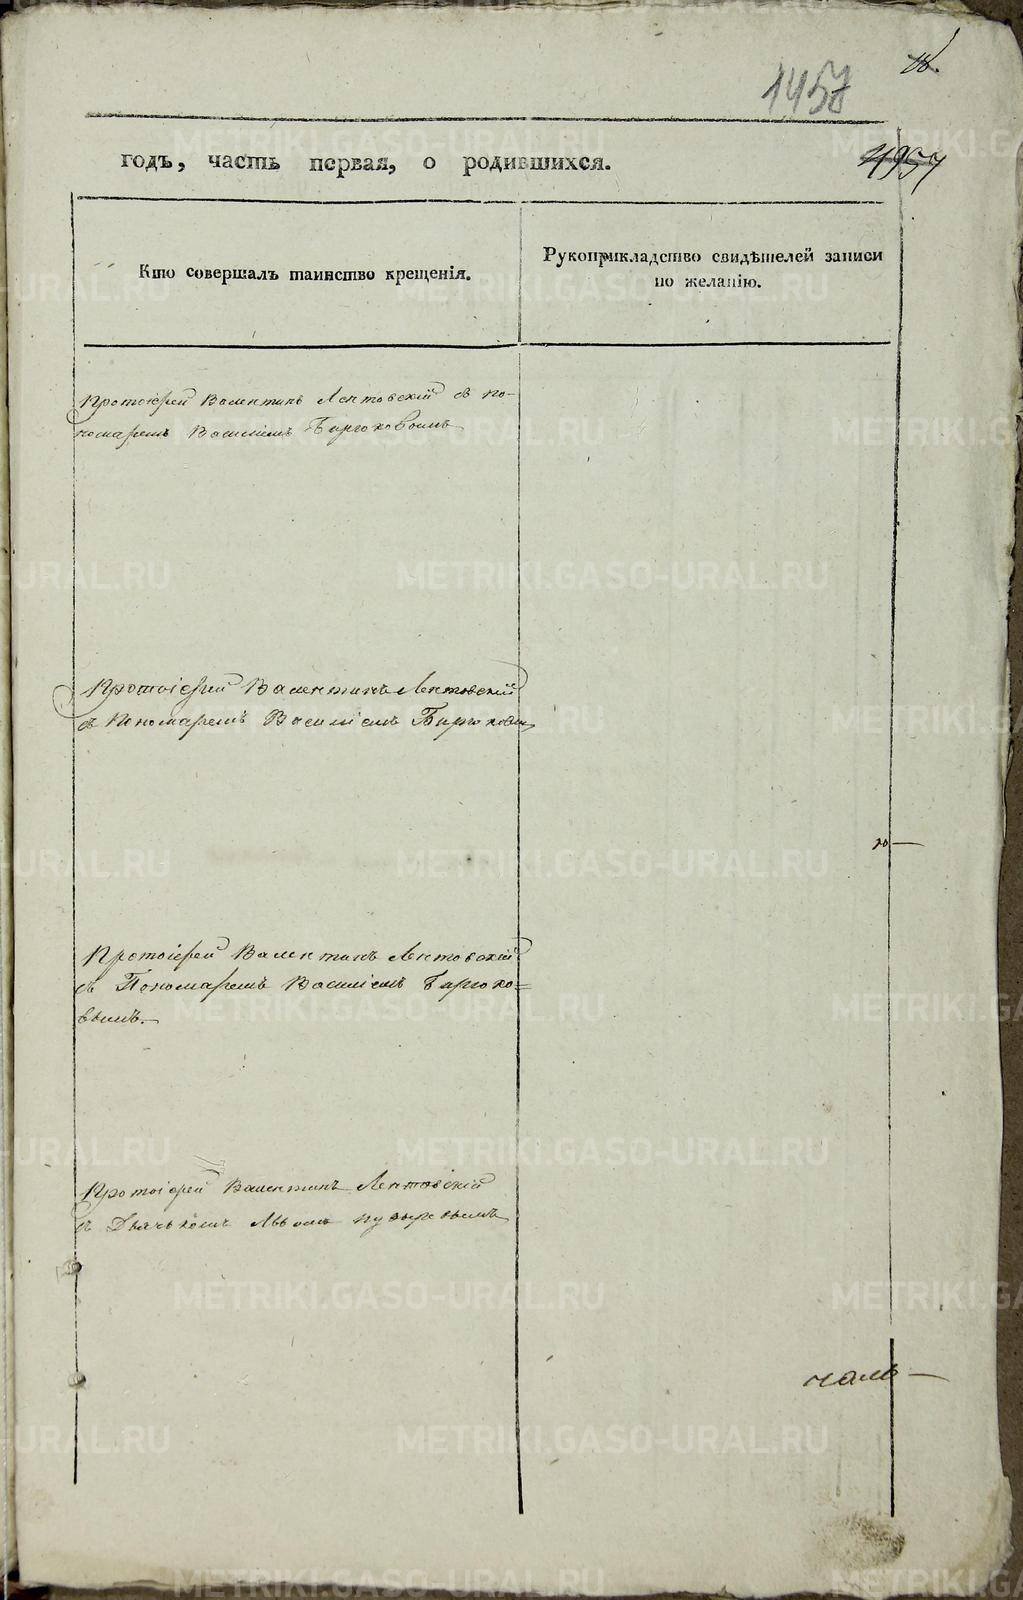 1457
годъ, часть первая, о родившихся.
4957
Кто совершалъ таинство крещенія.
Рукоприкладство свидѣтелей записи
по желанію.
Протоіерей Валентинъ Лентовскій съ по-
номаремъ Василіемъ Бирюковымъ
Протоіерей Валентинъ Лентовскій
съ Пономаремъ Василіемъ Бирюковым
Протоіерей Валентинъ Лентовскій
съ Пономаремъ Василіемъ Бирюко=
вымъ.
Протоіерей Валентинъ Лентовскій
съ Дьячькомъ Львомъ Пузыревымъ
METRIKI.GASO-URAL.RU